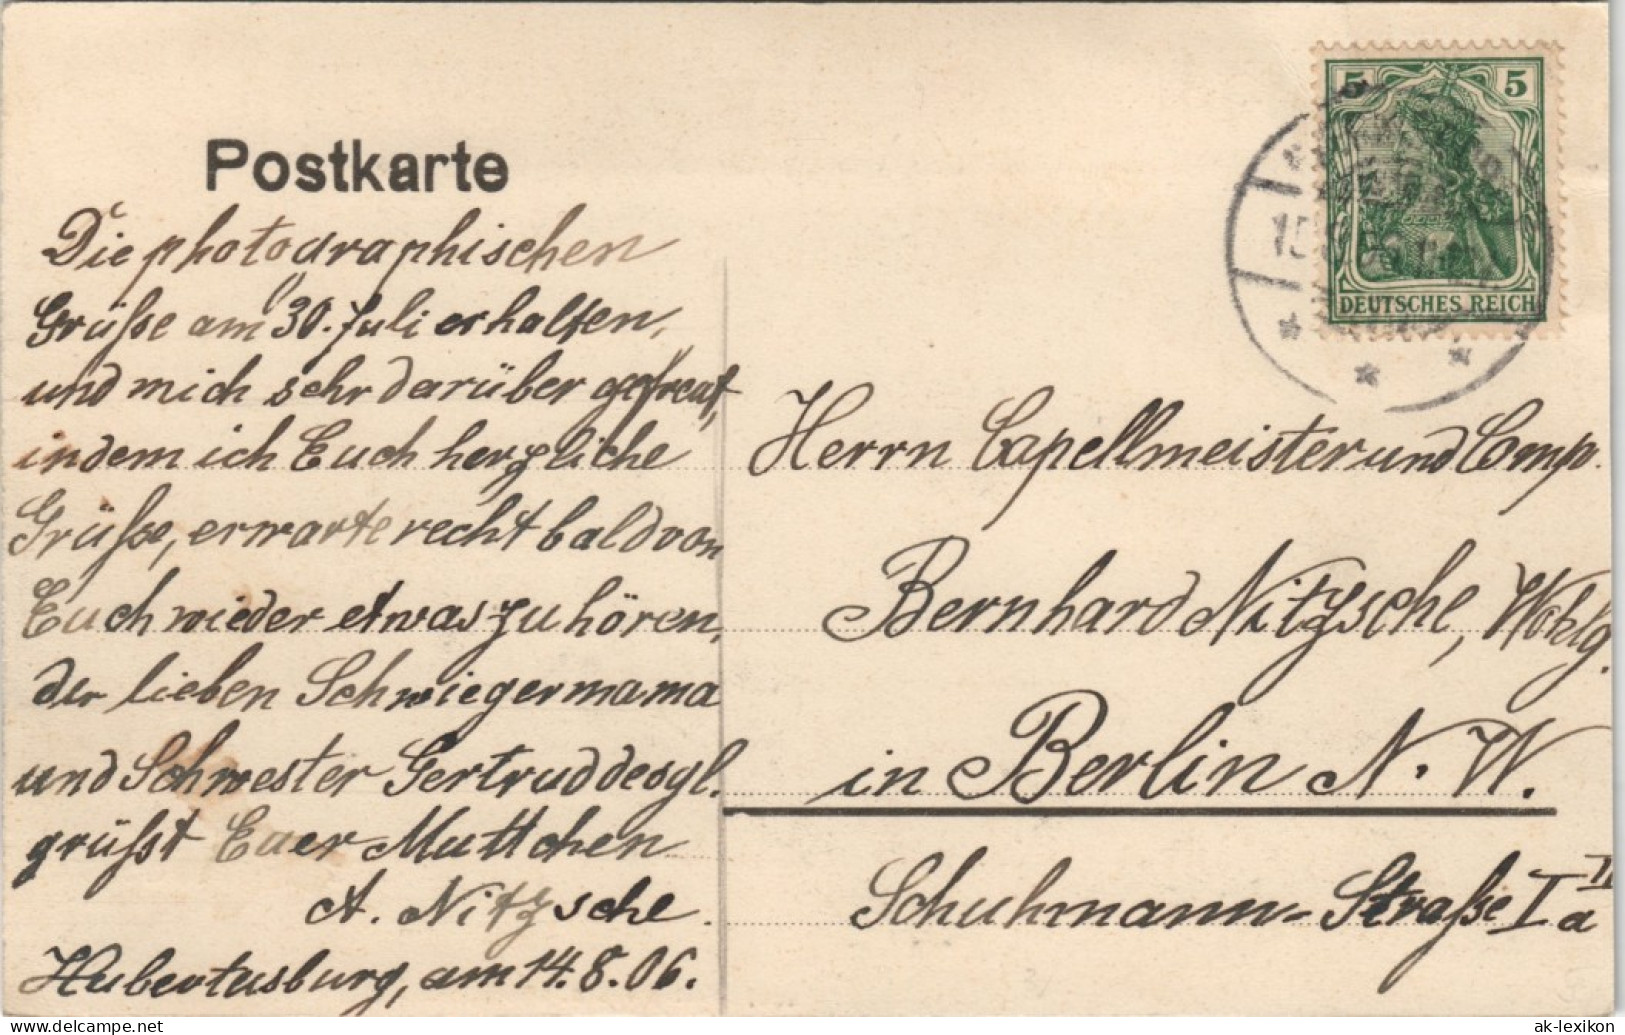 Postkarte
Die photographischen
Grüße am 30. Juli erhalten,
und mich sehr darüber gefreut,
indem ich Euch herzliche
Grüße, erwarte recht bald von
Euch wieder etwas zu hören,
der lieben Schwiegermama
und Schwester Gertrud desgl.
grüßt Euer Muttchen
A. Nitzsche.
Hubertusburg, am 14.8.06.
5 5
DEUTSCHES REICH
Herrn Capellmeister und Comp.
Bernhard Nitzsche, Wohlg.
in Berlin N. W.
Schuhmann-Straße I a II
delcampe.net
ak-lexikon